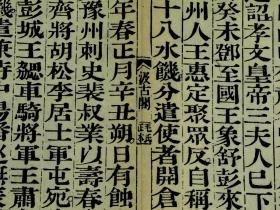 詔孝文皇帝三夫人已下
癸未鄧至國王象舒彭來
州人王惠定聚眾反自稱
十八水饑分遣使者開倉
汲古閣
毛氏
年春正月辛丑朔日有蝕
豫州刺史裴叔業以壽春
齊將胡松李居士軍屯宛
彭城王勰車騎將軍王肅
饑遣兼侍中楊播巡